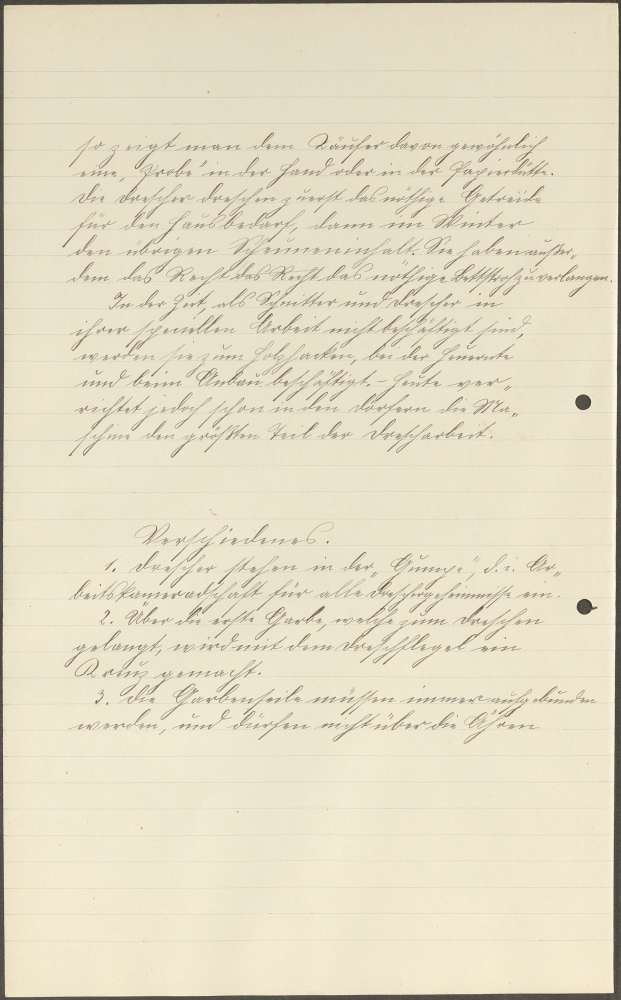 so zeigt man dem Käufer davon gewöhnlich
eine „Probe" in der Hand oder in der Papierdütte.
Die Drescher dreschen zuerst das nöthige Getreide
für den Hausbedarf, dann im Winter
den übrigen Scheuneninhalt. Sie haben außer„
dem das Recht das Recht das nöthige Bettstroh zu verlangen.
In der Zeit, als Schnitter und Drescher in
ihrer speciellen Arbeit nicht beschäftigt sind,
werden sie zum Holzhacken, bei der Heuernte
und beim Anbau beschäftigt. - Heute ver„
richtet jedoch schon in den Dörfern die Ma„
schine den größten Teil der Drescharbeit.
Verschiedenes.
1. Drescher stehen in der „Gumpe", d. i. Ar„
beitskameradschaft für alle Dreschergeheimnisse ein.
2. Über die erste Garbe, welche zum Dreschen
gelangt, wird mit dem Dreschflegel ein
Kreuz gemacht.
3. Die Garbenseile müssen immer aufgebunden
werden, und dürfen nicht über die Ähren